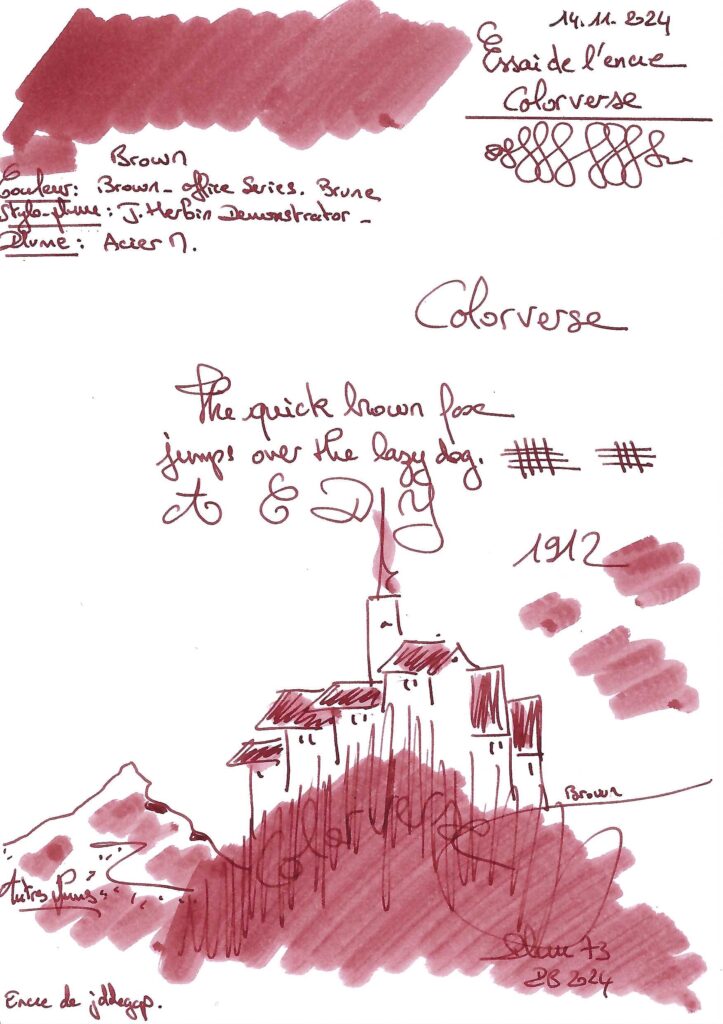 14.11.2024
Essai de l'encre
Colorverse
Brown
Couleur: Brown - office Series. Brune
Stylo-plume: J. Herbin Demonstrator -
Plume: Acier M.
Colorverse
The quick brown fox
jumps over the lazy dog.
A E D Y
1912
Brown
Colorverse
Autres
73
2024
Encre de jddegap.